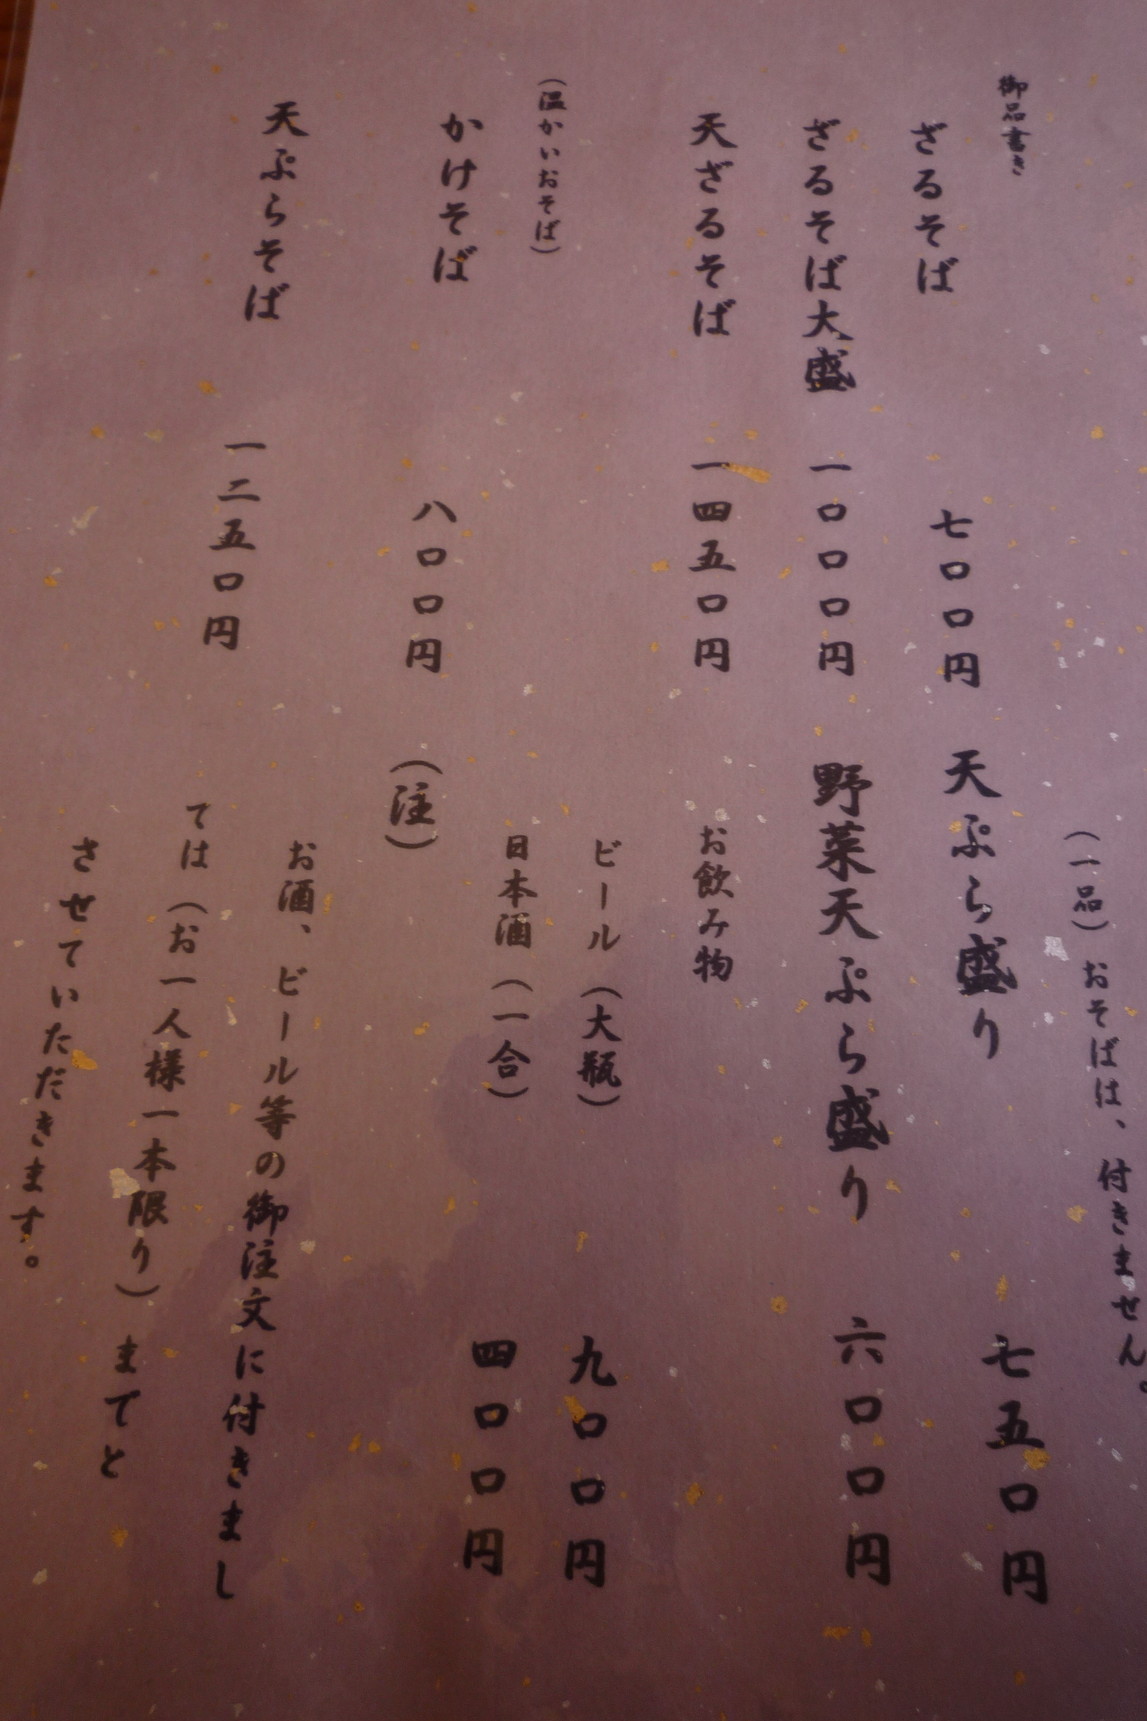 御品書き
ざるそば 七〇〇円
ざるそば大盛 一〇〇〇円
天ざるそば 一四五〇円
(温かいおそば)
かけそば 八〇〇円
天ぷらそば 一二五〇円
(一品)おそばは、付きません。
天ぷら盛り 七五〇円
野菜天ぷら盛り 六〇〇円
お飲み物
ビール(大瓶) 九〇〇円
日本酒(一合) 四〇〇円
(注)
お酒、ビール等の御注文に付きまし
ては(お一人様一本限り)までと
させていただきます。